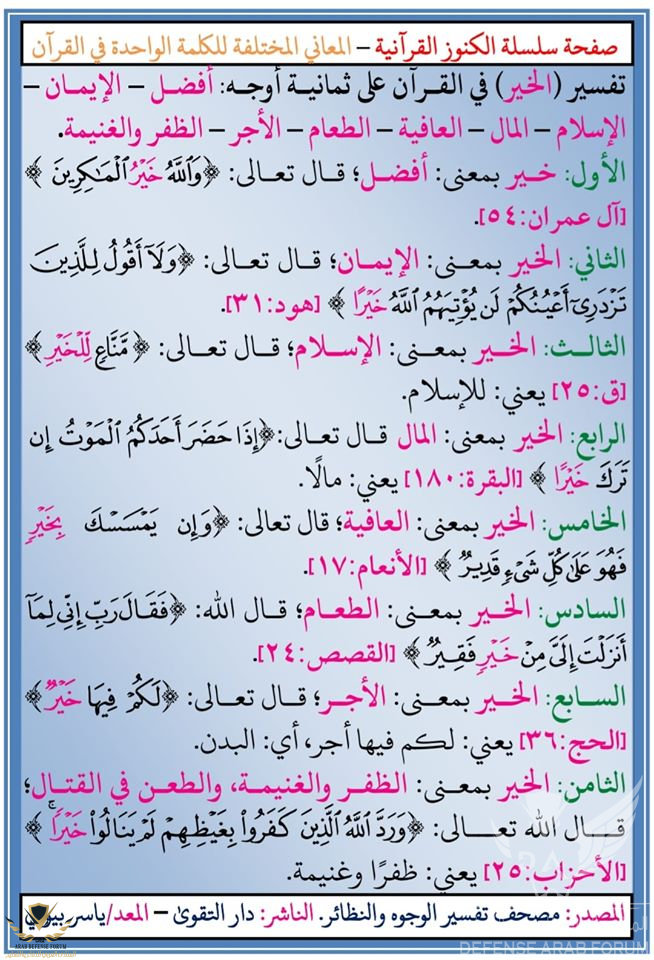 صفحة سلسلة الكنوز القرآنية – المعاني المختلفة للكلمة الواحدة في القرآن
تفسير (الخير) في القرآن على ثمانية أوجه: أفضل – الإيمان –
الإسلام – المال – العافية – الطعام – الأجر – الظفر والغنيمة.
الأول: خير بمعنى: أفضل؛ قال تعالى: ﴿وَٱللَّهُ خَيْرُ ٱلْمَٰكِرِينَ﴾
[آل عمران:٥٤].
الثاني: الخير بمعنى: الإيمان؛ قال تعالى: ﴿وَلَآ أَقُولُ لِلَّذِينَ
تَزْدَرِىٓ أَعْيُنُكُمْ لَن يُؤْتِيَهُمُ ٱللَّهُ خَيْرًا﴾ [هود:٣١].
الثالث: الخير بمعنى: الإسلام؛ قال تعالى: ﴿مَّنَّاعٍ لِّلْخَيْرِ﴾
[ق:٢٥] يعني: للإسلام.
الرابع: الخير بمعنى: المال قال تعالى: ﴿إِذَا حَضَرَ أَحَدَكُمُ ٱلْمَوْتُ إِن
تَرَكَ خَيْرًا﴾ [البقرة:١٨٠] يعني: مالًا.
الخامس: الخير بمعنى: العافية؛ قال تعالى: ﴿وَإِن يَمْسَسْكَ بِخَيْرٍ
فَهُوَ عَلَىٰ كُلِّ شَىْءٍ قَدِيرٌ﴾ [الأنعام:١٧].
السادس: الخير بمعنى: الطعام؛ قال الله: ﴿فَقَالَ رَبِّ إِنِّى لِمَآ
أَنزَلْتَ إِلَىَّ مِنْ خَيْرٍ فَقِيرٌ﴾ [القصص:٢٤].
السابع: الخير بمعنى: الأجر؛ قال تعالى: ﴿لَكُمْ فِيهَا خَيْرٌ﴾
[الحج:٣٦] يعني: لكم فيها أجر، أي: البدن.
الثامن: الخير بمعنى: الظفر والغنيمة، والطعن في القتال؛
قال الله تعالى: ﴿وَرَدَّ ٱللَّهُ ٱلَّذِينَ كَفَرُوا۟ بِغَيْظِهِمْ لَمْ يَنَالُوا۟ خَيْرًا ۚ﴾
[الأحزاب:٢٥] يعني: ظفرًا وغنيمة.
المصدر: مصحف تفسير الوجوه والنظائر. الناشر: دار التقوى – المعد/ياسر بيومي
ARAB DEFENSE FORUM
DEFENSE ARAB FORUM